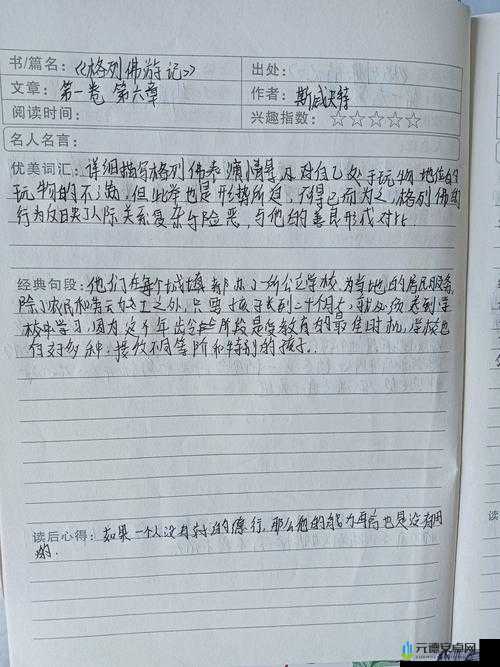 书/篇名：《格列佛游记》 出处：
文章：第一卷 第六章 作者：斯威夫特
阅读时间： 兴趣指数：☆☆☆☆☆
名人名言：
优美词汇：详细描写格列佛 及对自己处于玩物地位的
玩物的不满，但此举也是形势所迫，不得已而为之，格列佛的
行为反日关了人际关系复杂与险恶，与他的善良形成对比
经典句段：他们在每个城镇都办了所公立学校，为当地的居民服务
除了农民和 工之外，只要孩子长到二十个月大，就必须送到学
校中学习，因为这个年 阶段是受教育的最佳时机，学校也
有好多种，接收不同等阶和特别的孩子．
读后心得：如果一个人没有 的德行，那么他的能力再高也是没有用
的．
元德安卓网